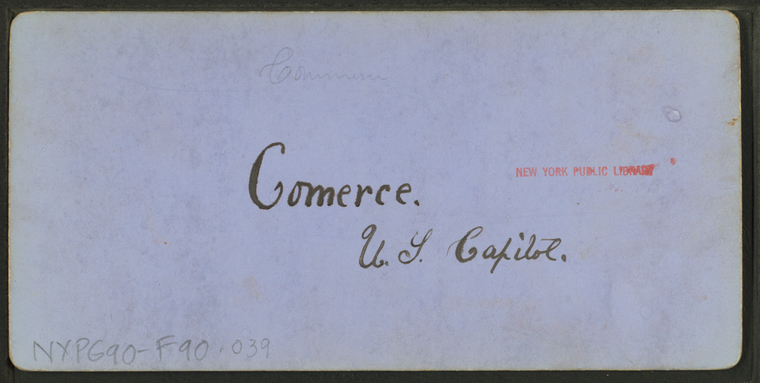 Commerce
Comerce.
NEW YORK PUBLIC LIBRARY
U. S. Capitol.
NYPG90-F90.039